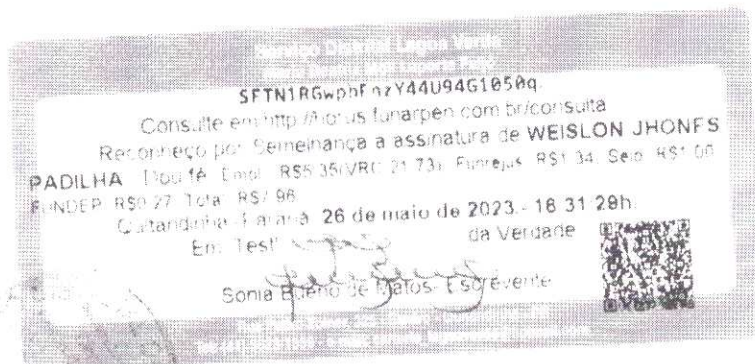 Distrital Lagoa Verde
SFTN1RGwphFnzY44U94G1050q
Consulte em http://horus.funarpen.com.br/consulta
Reconheço por Semelhança a assinatura de WEISLON JHONES
PADILHA Dou fé. Emol R$5,35(VRC 21,73), Funrejus R$1,34, Selo R$1,00
FUNDEP R$0,27 Total R$7,96
Quitandinha-Paraná, 26 de maio de 2023 - 16:31:29h.
Em Testº da Verdade
Sonia Bueno de Matos- Escrevente